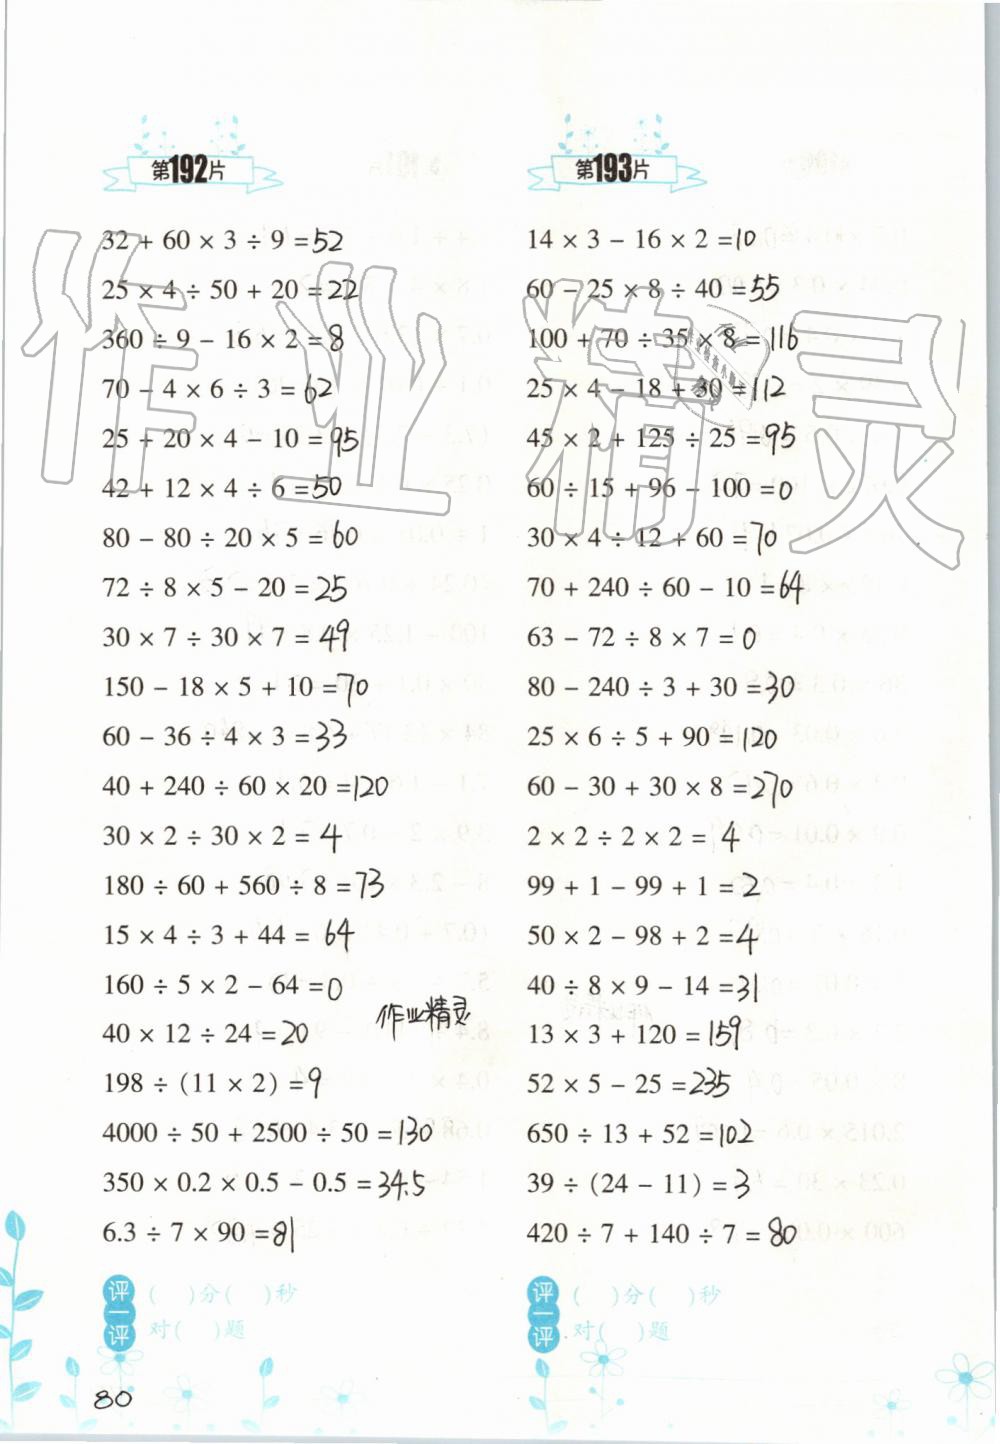 第192片
32 + 60 × 3 ÷ 9 = 52
25 × 4 ÷ 50 + 20 = 22
360 ÷ 9 - 16 × 2 = 8
70 - 4 × 6 ÷ 3 = 62
25 + 20 × 4 - 10 = 95
42 + 12 × 4 ÷ 6 = 50
80 - 80 ÷ 20 × 5 = 60
72 ÷ 8 × 5 - 20 = 25
30 × 7 ÷ 30 × 7 = 49
150 - 18 × 5 + 10 = 70
60 - 36 ÷ 4 × 3 = 33
40 + 240 ÷ 60 × 20 = 120
30 × 2 ÷ 30 × 2 = 4
180 ÷ 60 + 560 ÷ 8 = 73
15 × 4 ÷ 3 + 44 = 64
160 ÷ 5 × 2 - 64 = 0
作业精灵
40 × 12 ÷ 24 = 20
198 ÷ (11 × 2) = 9
4000 ÷ 50 + 2500 ÷ 50 = 130
350 × 0.2 × 0.5 - 0.5 = 34.5
6.3 ÷ 7 × 90 = 81
评一评
( )分( )秒
对( )题
第193片
14 × 3 - 16 × 2 = 10
60 - 25 × 8 ÷ 40 = 55
100 + 70 ÷ 35 × 8 = 116
25 × 4 - 18 + 30 = 112
45 × 2 + 125 ÷ 25 = 95
60 ÷ 15 + 96 - 100 = 0
30 × 4 ÷ 12 + 60 = 70
70 + 240 ÷ 60 - 10 = 64
63 - 72 ÷ 8 × 7 = 0
80 - 240 ÷ 3 + 30 = 30
25 × 6 ÷ 5 + 90 = 120
60 - 30 + 30 × 8 = 270
2 × 2 ÷ 2 × 2 = 4
99 + 1 - 99 + 1 = 2
50 × 2 - 98 + 2 = 4
40 ÷ 8 × 9 - 14 = 31
13 × 3 + 120 = 159
52 × 5 - 25 = 235
650 ÷ 13 + 52 = 102
39 ÷ (24 - 11) = 3
420 ÷ 7 + 140 ÷ 7 = 80
评一评
( )分( )秒
对( )题
80
作业精灵